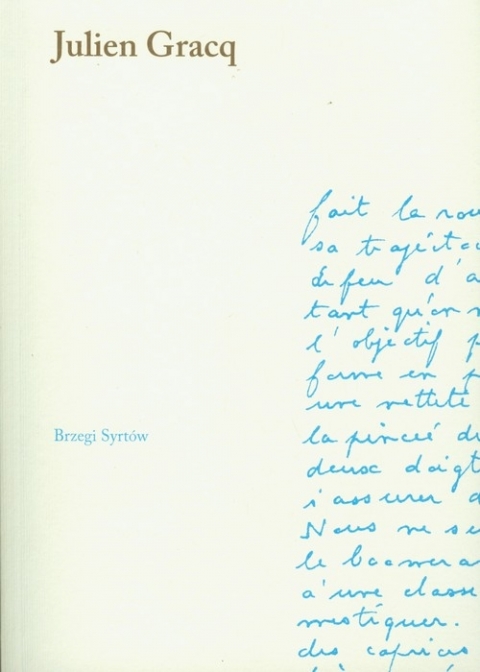 Julien Gracq
fait la
sa
de feu d'a
tant qu'on
l'objectif p
forme en p
une netteté
la pincée de
deux doigt
s'assurer d
Nous ne
le boomera
à une classe
mestiquer.
des caprices
Brzegi Syrtów